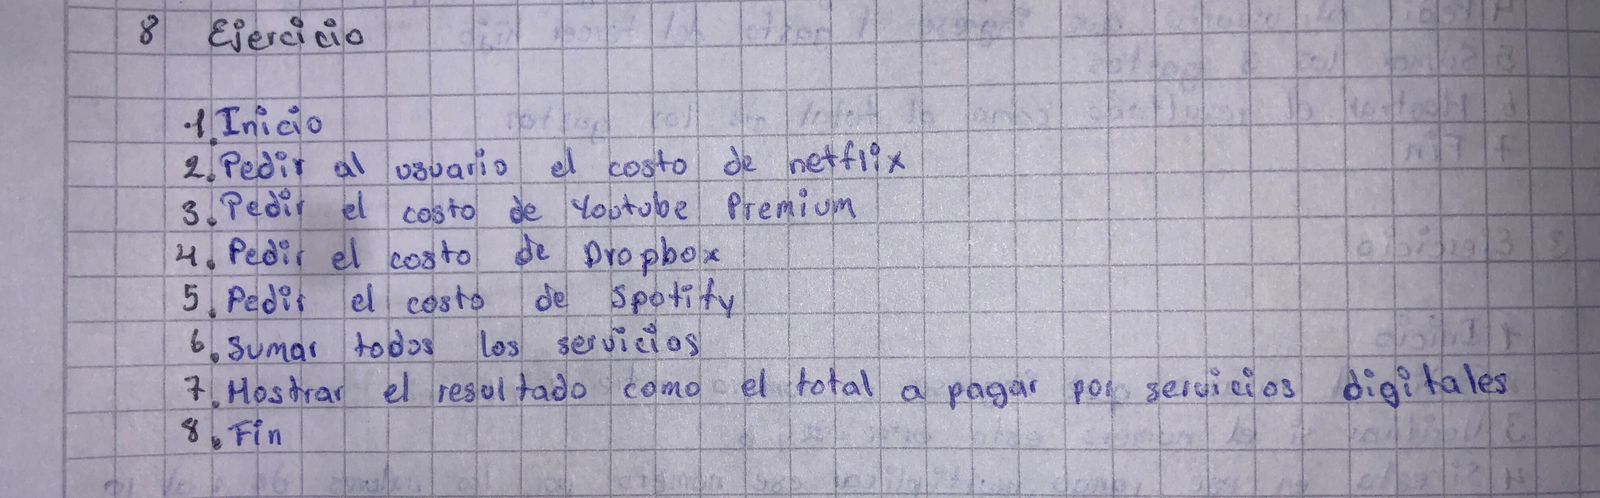 8 Ejercicio
1. Inicio
2. Pedir al usuario el costo de netflix
3. Pedir el costo de Youtube Premium
4. Pedir el costo de Dropbox
5. Pedir el costo de Spotify
6. Sumar todos los servicios
7. Mostrar el resultado como el total a pagar por servicios digitales
8. Fin